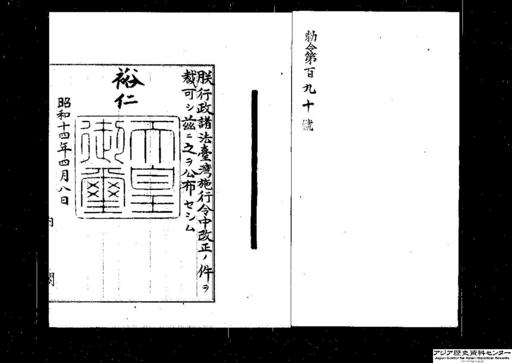 勅令第百九十號
朕行政諸法臺灣施行令中改正ノ件ヲ
裁可シ茲ニ之ヲ公布セシム
裕仁
天皇
御璽
昭和十四年四月八日
内閣
アジア歴史資料センター
Japan Center for Asian Historical Records